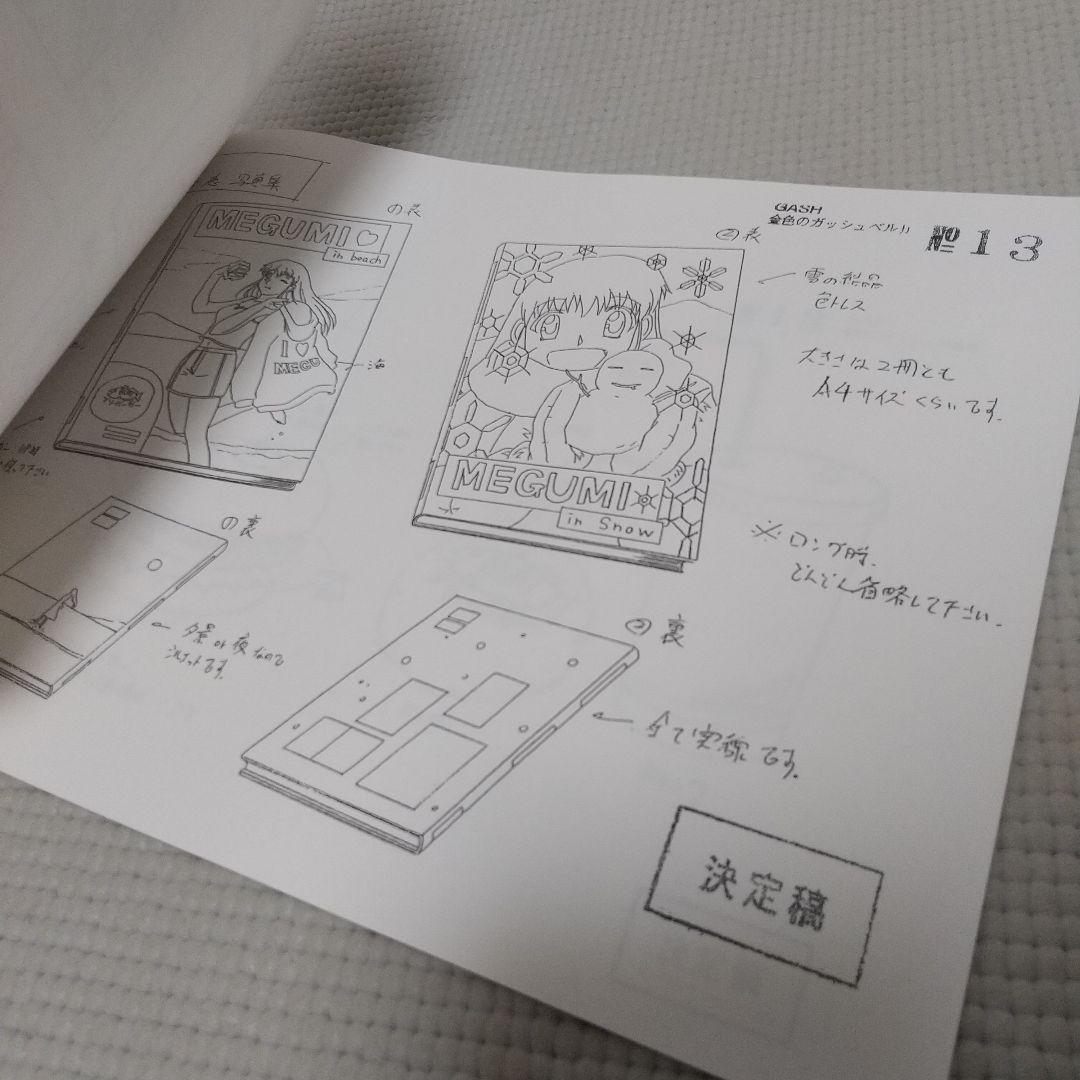 写真集
の表
MEGUMI♡
in beach
I ♡
MEGU
海
の裏
夕景or夜なので
シルエットです。
GASH
金色のガッシュベル!!
№13
②表
雪の結晶
色トレス
大きさは2冊とも
A4サイズくらいです。
MEGUMI
in Snow
※ロング時、
どんどん省略して下さい。
②裏
全て実線です。
決定稿